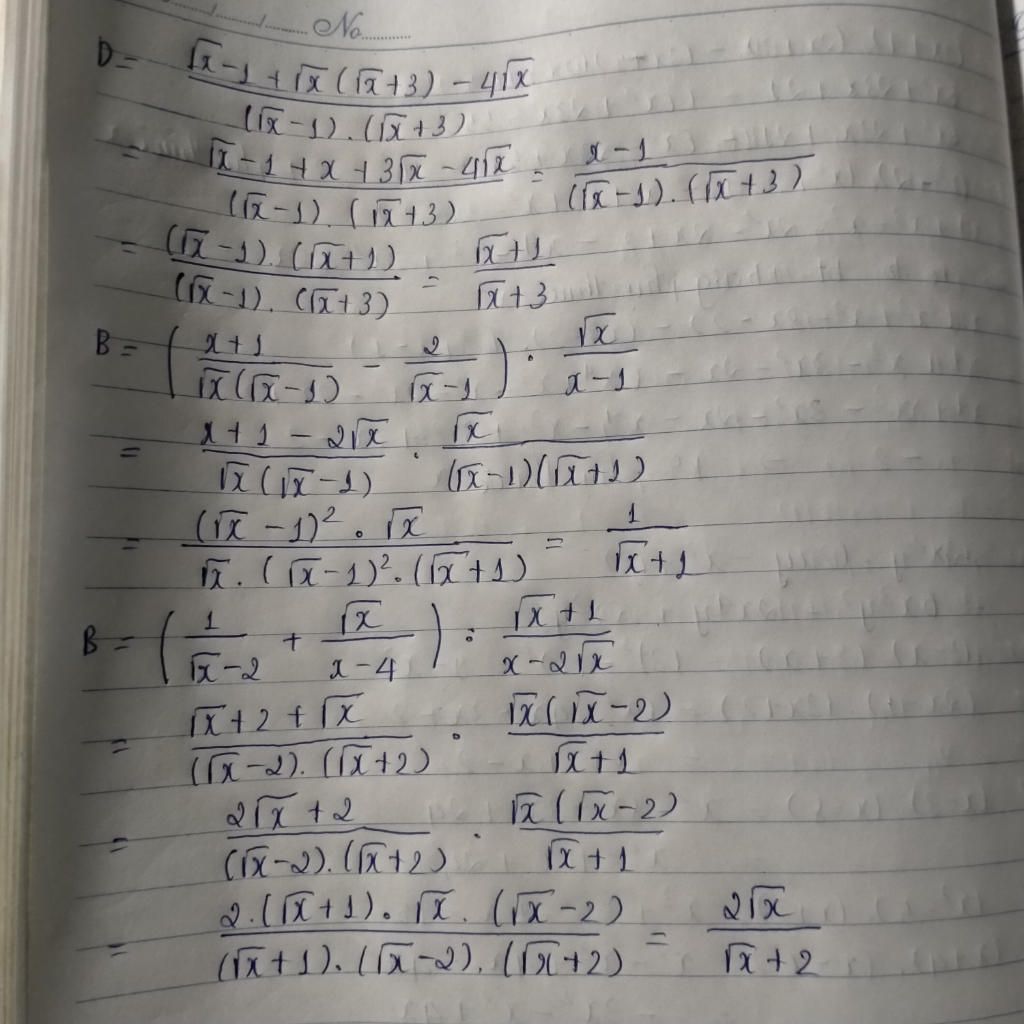 No.
D = (√x - 1 + √x(√x + 3) - 4√x) / ((√x - 1).(√x + 3))
= (√x - 1 + x + 3√x - 4√x) / ((√x - 1).(√x + 3)) = (x - 1) / ((√x - 1).(√x + 3))
= ((√x - 1).(√x + 1)) / ((√x - 1).(√x + 3)) = (√x + 1) / (√x + 3)
B = ((x + 1) / (√x(√x - 1)) - 2 / (√x - 1)) . √x / (x - 1)
= (x + 1 - 2√x) / (√x(√x - 1)) . √x / ((√x - 1)(√x + 1))
= ((√x - 1)² . √x) / (√x.(√x - 1)².(√x + 1)) = 1 / (√x + 1)
B = (1 / (√x - 2) + √x / (x - 4)) : (√x + 1) / (x - 2√x)
= (√x + 2 + √x) / ((√x - 2).(√x + 2)) . √x(√x - 2) / (√x + 1)
= (2√x + 2) / ((√x - 2).(√x + 2)) . √x(√x - 2) / (√x + 1)
= (2.(√x + 1).√x.(√x - 2)) / ((√x + 1).(√x - 2).(√x + 2)) = 2√x / (√x + 2)